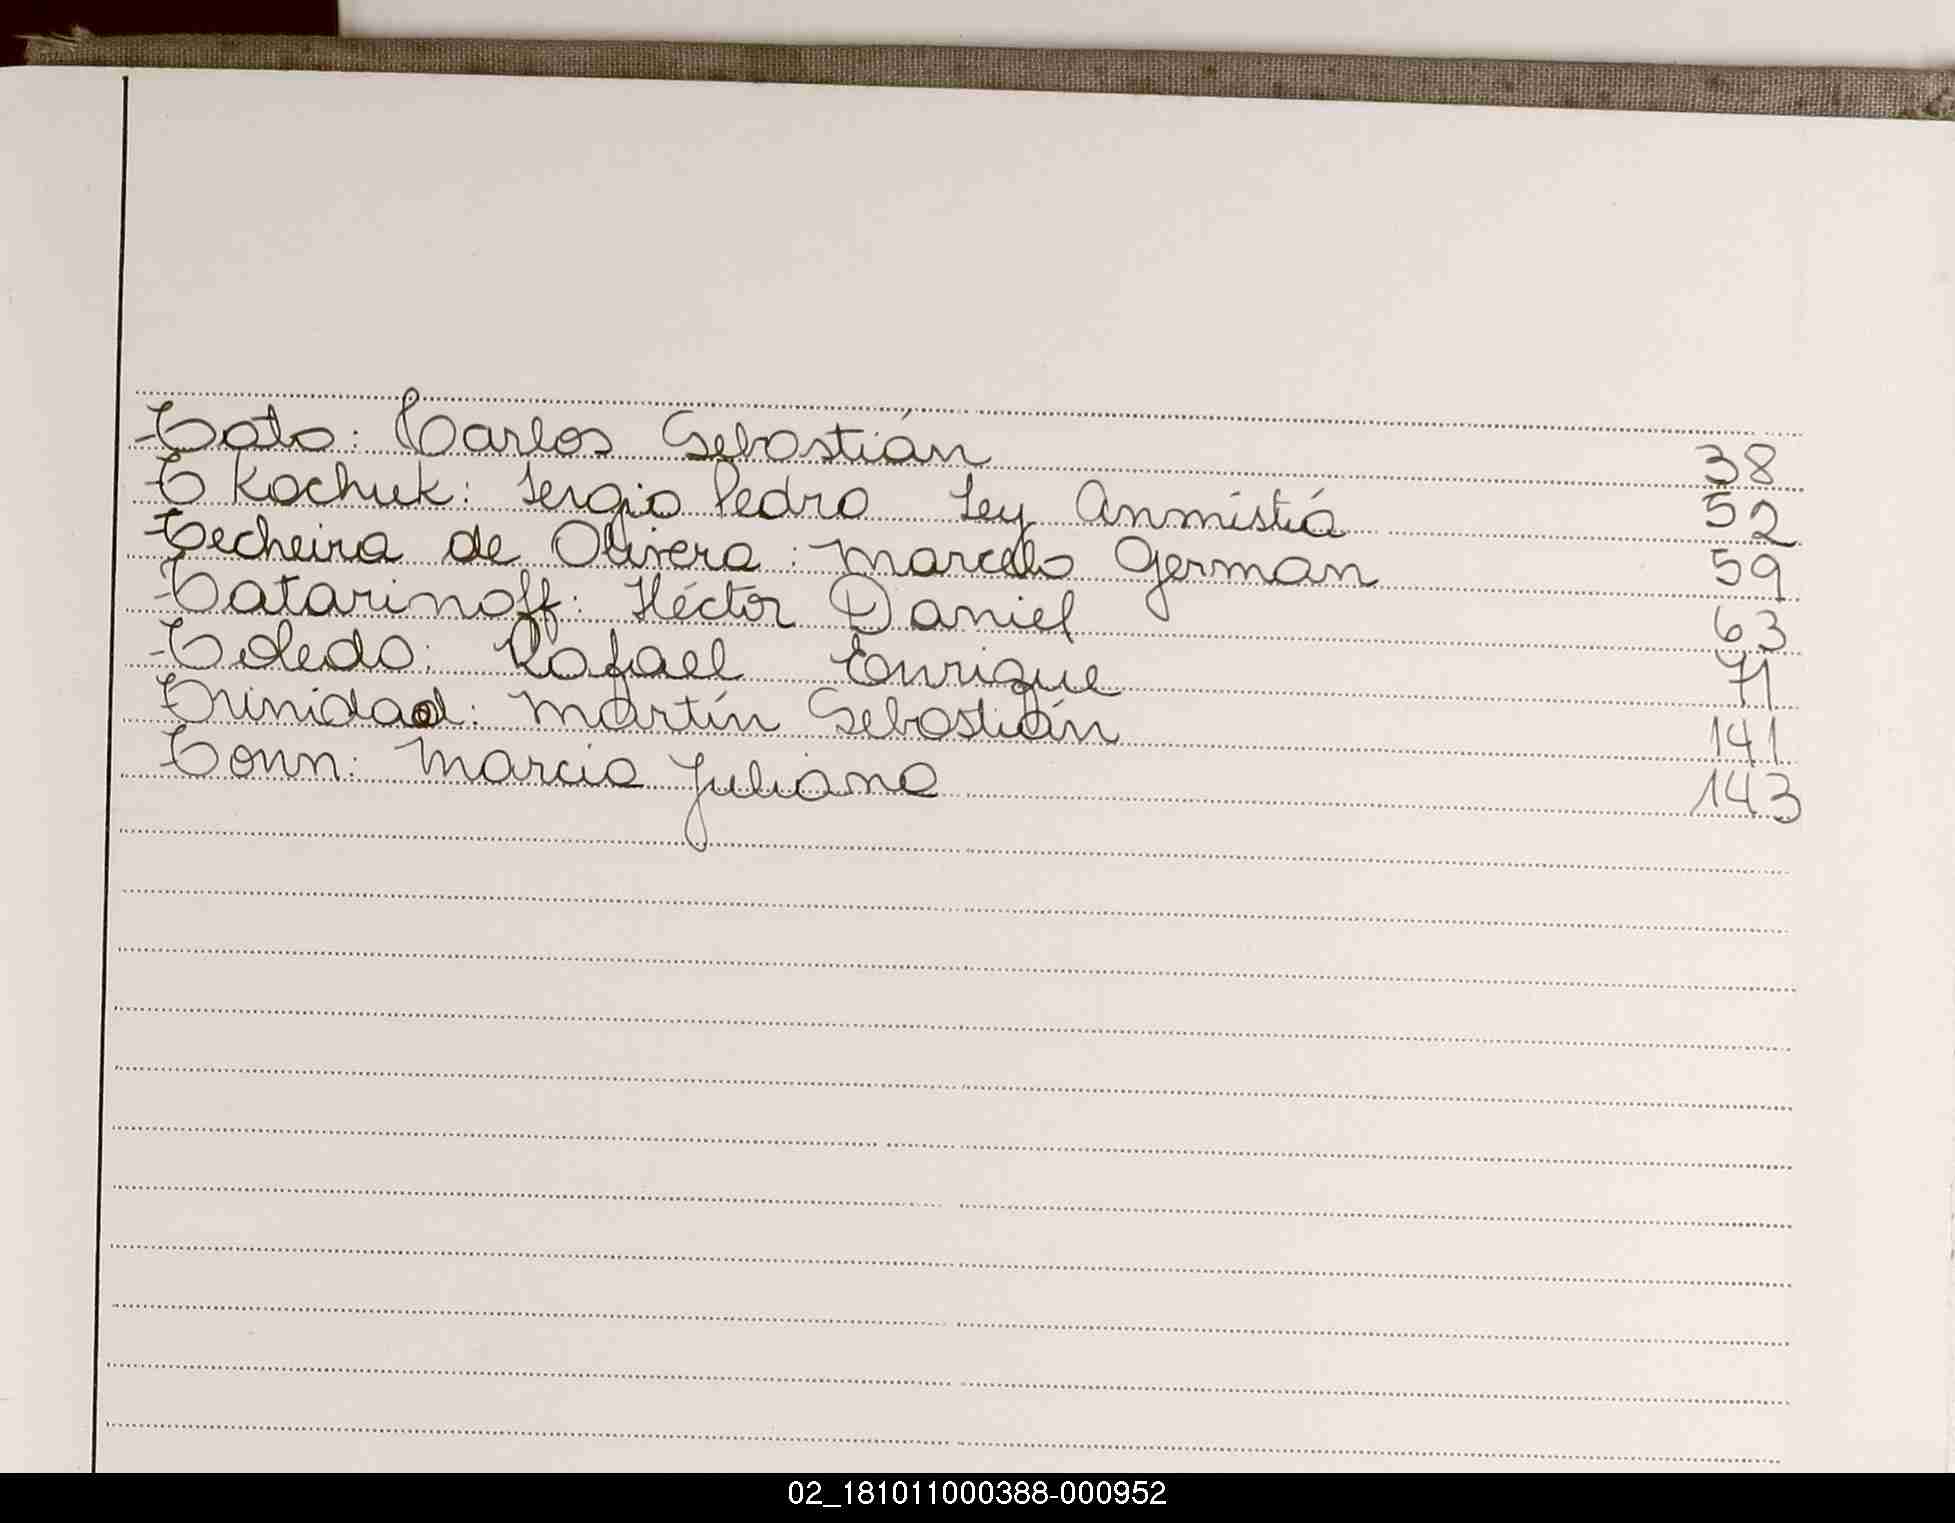 Tato: Carlos Sebastián 38
Tkachuk: Sergio Pedro Ley Anmistiá 52
Techeira de Olivera: Marcelo Germán 59
Tatarinoff: Héctor Daniel 63
Toledo: Rafael Enrique 71
Trinidad: Martín Sebastián 141
Tonn: Marcia Juliana 143
02_181011000388-000952